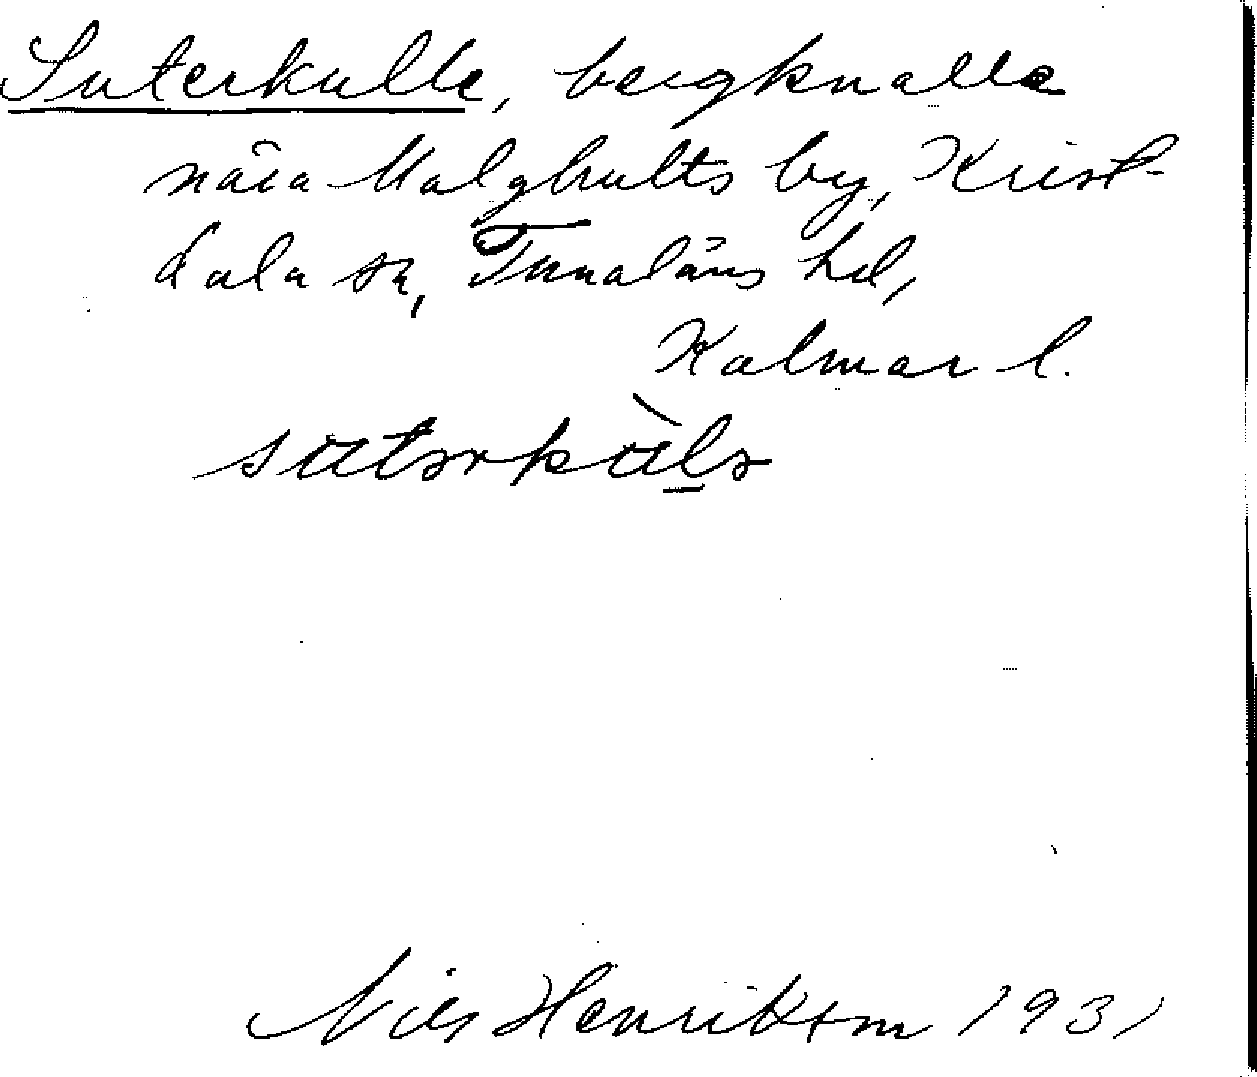 Suterkulle, bergknalle
nära Malghults by, Krist-
dala sn, Tunaläns hd,
Kalmar l.
Nils Henrikson 1931